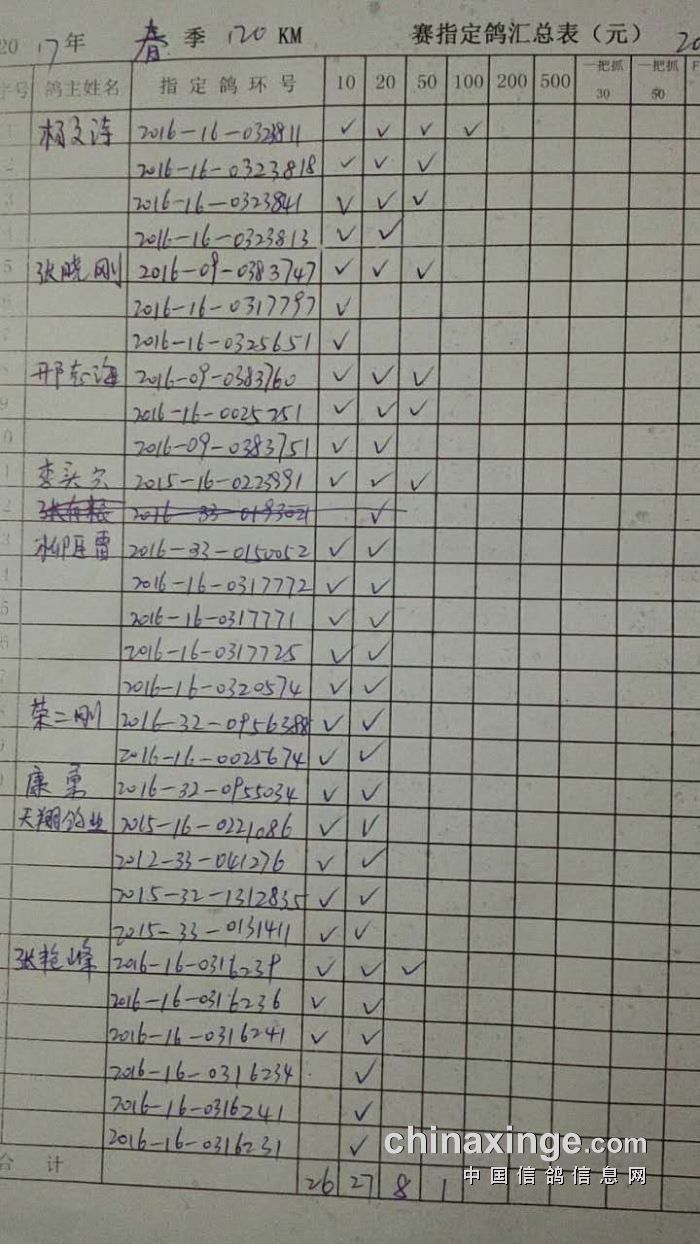 2017年 春季 120 KM 赛指定鸽汇总表（元） 20
序号 鸽主姓名 指定鸽环号 10 20 50 100 200 500 一把抓30 一把抓50 F
1 杨文涛 2016-16-0323811 ✓ ✓ ✓ ✓
2 2016-16-0323818 ✓ ✓ ✓
3 2016-16-0323841 ✓ ✓ ✓
4 2016-16-0323813 ✓ ✓
5 张晓刚 2016-09-0383747 ✓ ✓ ✓
6 2016-16-0317797 ✓
7 2016-16-0325651 ✓
海 2016-09-0383760 ✓ ✓ ✓
9 2016-16-0025251 ✓ ✓ ✓
0 2016-09-0383751 ✓ ✓
1 2015-16-0223991 ✓ ✓ ✓
2 2016-33-0193021 ✓
3 柳 2016-33-0150052 ✓ ✓
4 2016-16-0317772 ✓ ✓
5 2016-16-0317771 ✓ ✓
6 2016-16-0317725 ✓ ✓
7 2016-16-0320574 ✓ ✓
荣二刚 2016-32-0956388 ✓ ✓
9 2016-16-0025674 ✓ ✓
康勇 2016-32-0955034 ✓ ✓
天翔鸽业 2015-16-0221086 ✓ ✓
2012-33-041276 ✓ ✓
2015-32-1312835 ✓ ✓
2015-33-0131411 ✓ ✓
张艳峰 2016-16-0316239 ✓ ✓ ✓
2016-16-0316236 ✓ ✓
2016-16-0316241 ✓ ✓
2016-16-0316234 ✓
2016-16-0316241 ✓
2016-16-0316231 ✓
合计 26 27 8 1
chinaxinge.com
中国信鸽信息网